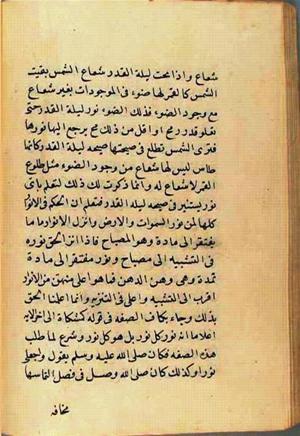 شعاع واذا محت ليلة القدر شعاع الشمس بقيت
الشمس كالقمر لها ضوء فى الموجودات بغير شعاع
مع وجود الضوء فذلك الضوء نور ليلة القدر حتى
تعلو قدر رمح او اقل من ذلك فح يرجع اليها نورها
فترى الشمس تطلع فى صبيحتها صبيحة ليلة القدر كانها
طاس ليس لها شعاع مع وجود الضوء مثل طلوع
القمر لا شعاع له وانما ذكرت لك ذلك لتعلم باى
نور تستنير فى صبيحة ليلة القدر فتعلم ان الحكم فى الانوار
كلها لمن نور السموات والارض وانزل الانوار ما
يفتقر الى مادة وهو المصباح فاذا انزل الحق نوره
فى التشبيه الى مصباح ونور مفتقر الى مادة
تمده وهى الدهن فما هو اعلى منه من الانوار
اقرب الى التشبيه واعلى فى التنزيه وانما اعلمنا الحق
بذلك وجاء بكاف الصفة فى قوله كمشكاة الى اخر الاية
اعلاما انه نور كل نور بل هو كل نور وشرع لنا طلب
هذه الصفة فكان صلى الله عليه وسلم يقول واجعلنى
نورا وكذلك كان صلى الله وسلم فى فصل التماسها
مخافة